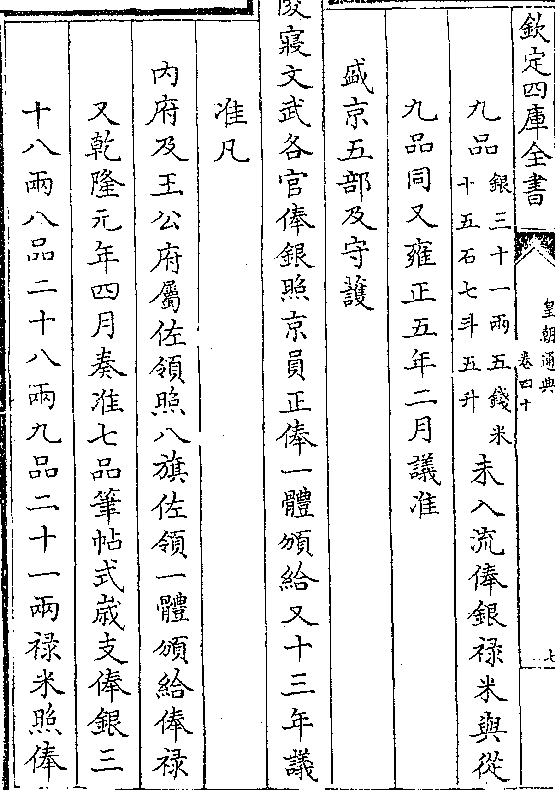 欽定四庫全書
皇朝通典
卷四十
七
九品銀三十一兩五錢米十五石七斗五升未入流俸銀祿米與從
九品同又雍正五年二月議准
盛京五部及守護
陵寢文武各官俸銀照京員正俸一體頒給又十三年議
准凡
內府及王公府屬佐領照八旗佐領一體頒給俸祿
又乾隆元年四月奏准七品筆帖式歲支俸銀三
十八兩八品二十八兩九品二十一兩祿米照俸